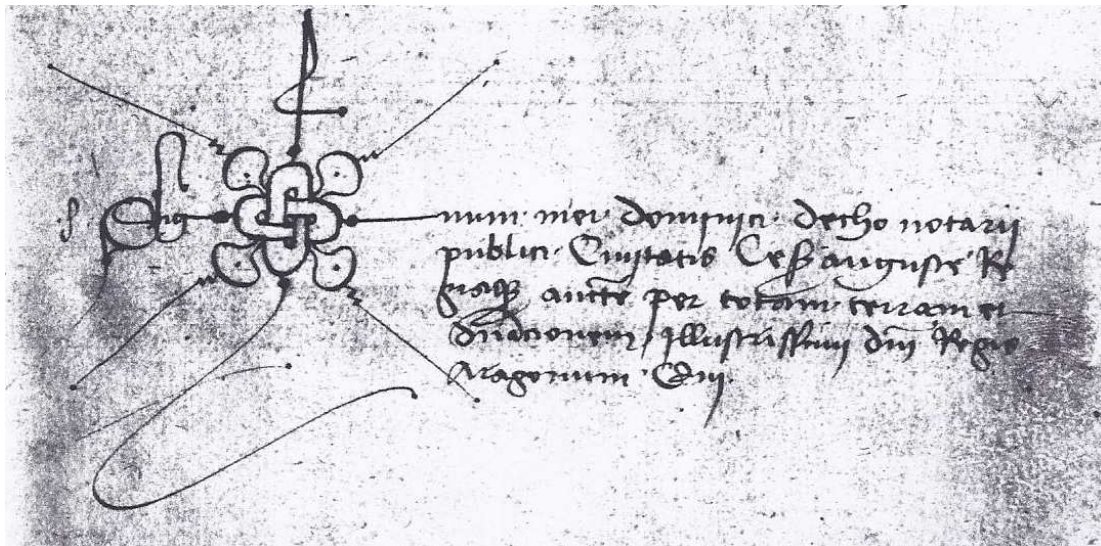 Sig num mei dominici decho notarii
publici Civitatis Cesarauguste Re
giaq auctte per totam terram et
dnacionem Illustrissimi dni Regis
Aragonum Qui